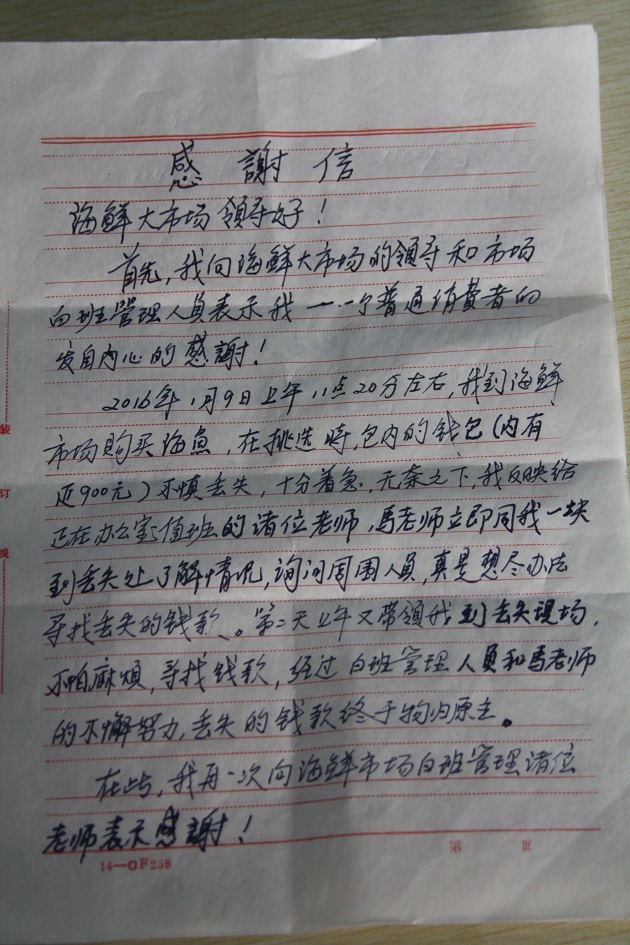 感 謝 信
海鲜大市场领导好！
首先，我向海鲜大市场的领导和市场
白班管理人员表示我一一个普通消费者的
发自内心的感謝！
2016年1月9日上午11点20分左右，我到海鲜
市场购买海鱼，在挑选時，包内的钱包（内有
近900元）不慎丢失，十分着急，无奈之下，我反映给
正在办公室值班的诸位老师，馬老师立即同我一块
到丢失处了解情况，询问周围人员，真是想尽办法
寻找丢失的钱款。第二天上午又带领我到丢失现场，
不怕麻烦，寻找钱款，经过白班管理人员和馬老师
的不懈努力，丢失的钱款终于物归原主。
在此，我再一次向海鲜市场白班管理诸位
老师表示感謝！
14—0F268
第 页
装
订
线